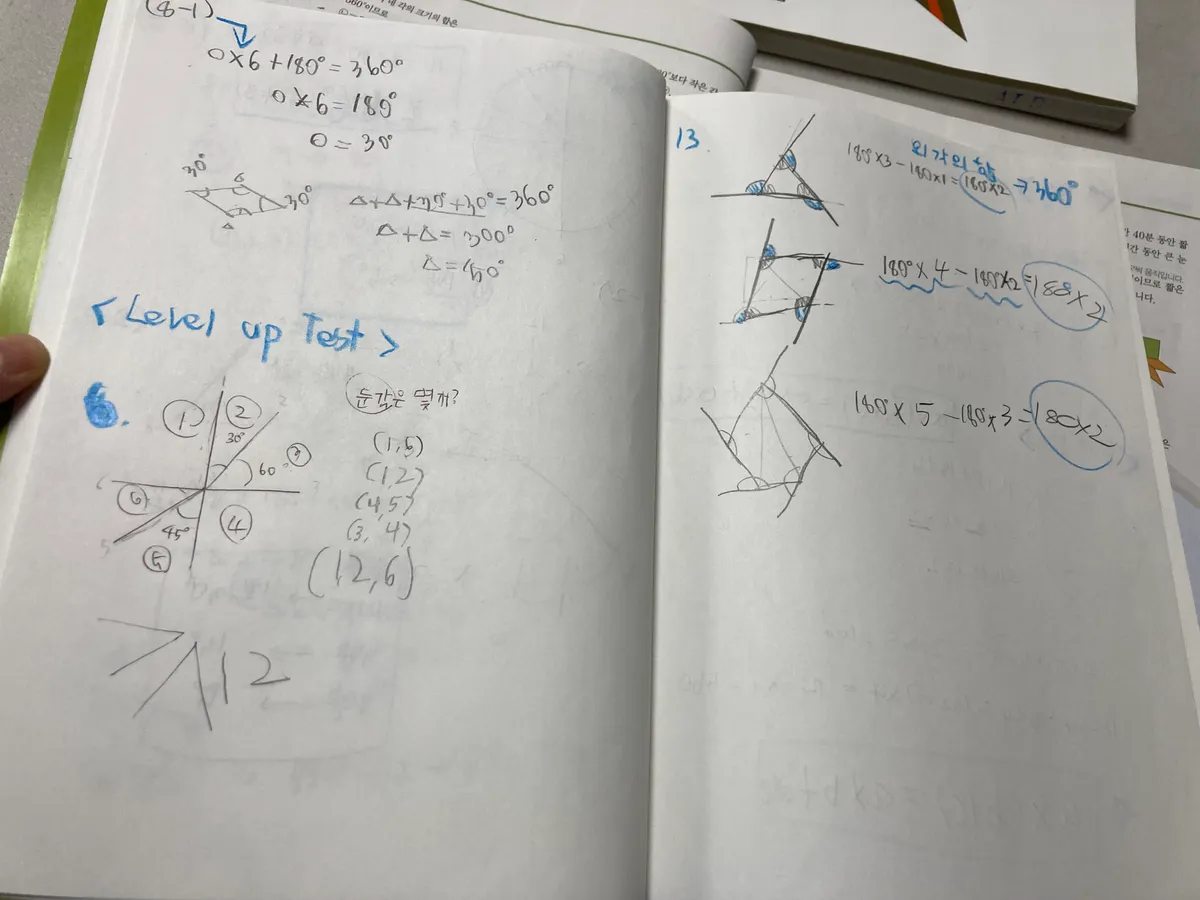 (8-1)
0×6+180°=360°
0×6=180°
0=30°
30°
30°
△+△+30°=360°
△+△=300°
△=150°
<Level up Test>
6.
① ②
30°
60°
⑥
45°
④
⑤
둔각은 몇개?
(1,5)
(1,2)
(4,5)
(3,4)
(12,6)
12
13.
외각의 합
→360°
180°×3-180×1=180×2
180°×4-180×2=180×2
180°×5-180×3=180×2
내 각의 크기의 합은
360°이므로
보다 작은 각
40분 동안 짧
동안 큰 눈
이므로 짧은
니다.